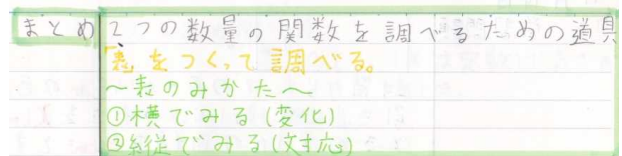 まとめ 2つの数量の関数を調べるための道具
「表をつくって調べる。
〜表のみかた〜
①横でみる(変化)
②縦でみる(対応)